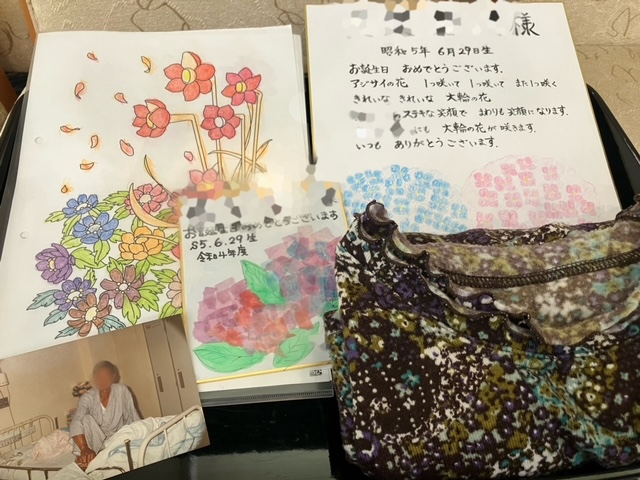 様
昭和5年 6月29日生
お誕生日 おめでとうございます。
アジサイの花 1つ咲いて 1つ咲いて また1つ咲く
きれいな きれいな 大輪の花
のステキな笑顔で まわりも笑顔になります。
にも 大輪の花が咲きます。
いつも ありがとうございます。
お誕生日おめでとうございます
S5.6.29生
令和4年度